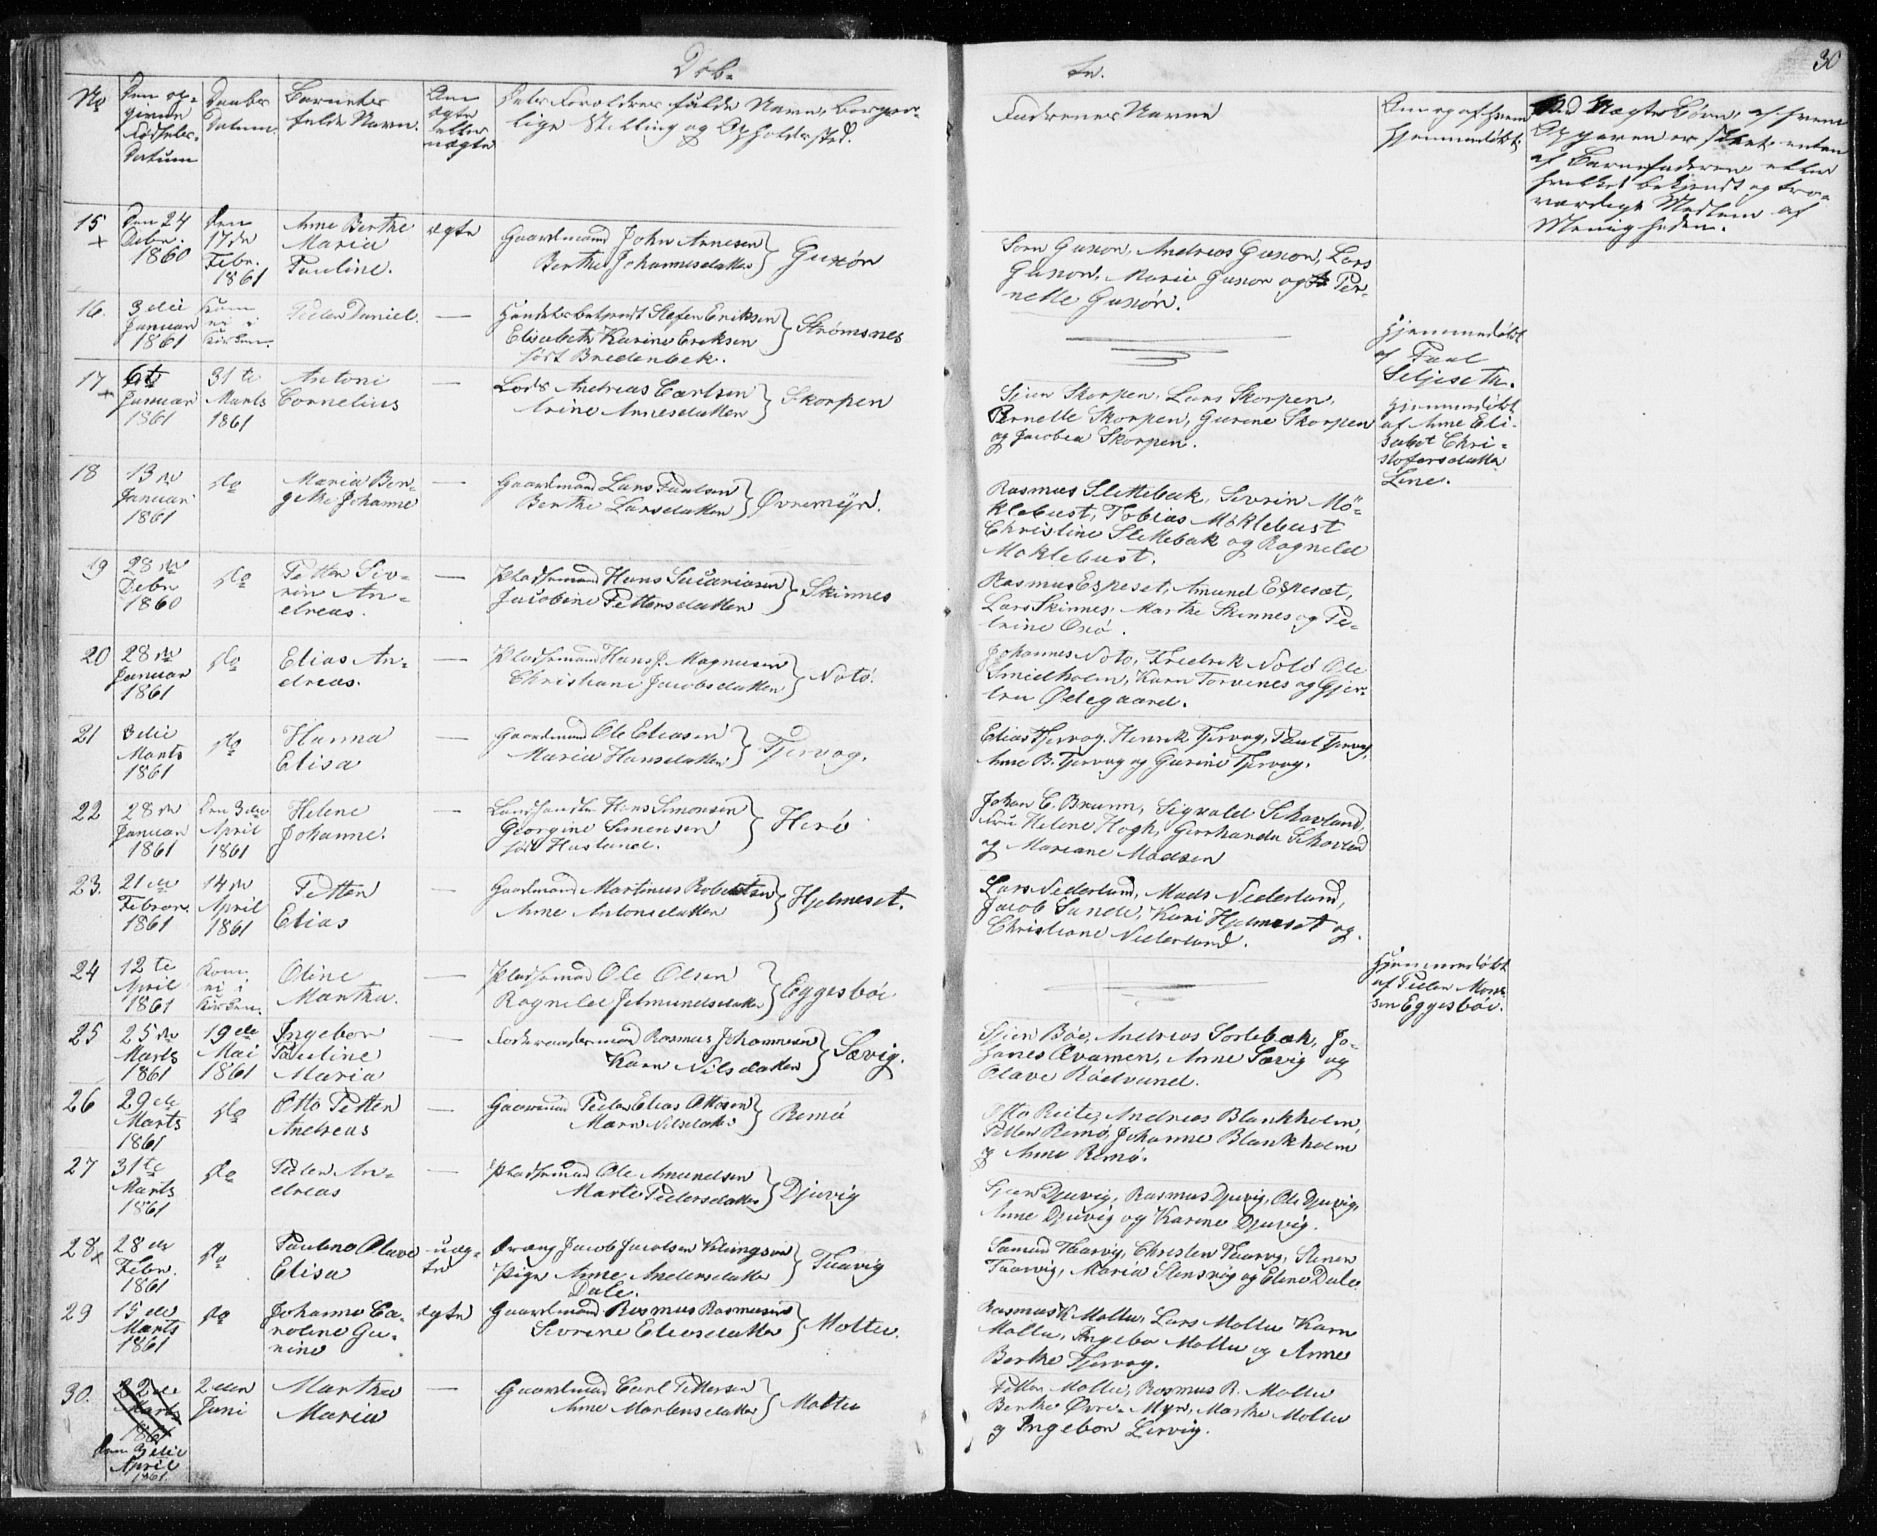 Døb-
te.
30
No
Den op-
givne
Fødsels-
Datum
Daabs
Datum.
Barnets
fulde Navn.
Om
ægte
eller
uægte
Dets Forældres fulde Navn, borger-
lige Stilling og Opholdssted.
Faddernes Navne
Om og af hvem
hjemmedøbt
Ved uægte Børn, af hvem
Opgaven er skeet, enten
af Barnefaderen, eller
hvilket bekjendt og tro-
værdigt Medlem af
Menigheden.
15
+
Den 24
Debr.
1860
Den
17de
Febr.
1861
Anne Berthe
Maria
Pauline.
ægte
Gaardmand John Arnesen
Berthe Johannesdatter
Gurskøn
16.
3die
Januar
1861
Kom
ei i
Kirken.
Peder Daniel.
—
Handelsbetjendt Stefen Eriksen
Elisabeth Karine Eriksen
født Bredenbek.
Strømsnes
Hjemmedøbt
af Paul
Seljeseth.
17
+
6te
Januar
1861
31te
Marts
1861
Antoni
Cornelius
—
Lods Andreas Carlsen
Arine Annesdatter
Skorpen
Sjur Skorpen, Lars Skorpen,
Pernelle Skorpen, Gurine Skorpen
og Jacobea Skorpen.
Hjemmedøbt
af Anne Eli-
sabet Chri-
stofersdatter
Line.
18
13de
Januar
1861
do
Maria Ber-
gethe Johanne
—
Gaardmand Lars Paulsen
Berthe Larsdatter
Øvremyr.
Rasmus Slettebak, Sevrin Mö-
klebust, Tobias Möklebust
Christine Slettebak og Ragnild
Moklebust.
19
28de
Debr
1860
do
Petter Siv-
rin An-
dreas.
—
Pladsemand Hans Sacariasen
Jacobine Pettersdatter
Skinnes
Rasmus Espeset, Amund Espeset,
Lars Skinnes, Marthe Skinnes og Pe-
trine
20
28de
Januar
1861
do
Elias An-
dreas.
—
Pladsemand Hans J. Magnusen
Christiane Jacobsdatter
Notø.
Johannes Notø, Fredrik Notø Ole
Smidholm, Karn Torvenes og Gjer-
tru Ødegaard.
21
3die
Marts
1861
do
Hanna
Elisa
—
Gaardmand Ole Eliasen
Maria Hansdatter
Tjervog.
Elias Tjervog, Henrik Tjervog, Paul Tjervog,
Anne B. Tjervog og Gurine Tjervog.
22
28de
Januar
1861
Den 3die
April
1861
Helene
Johanne.
—
Landhandler Hans Simonsen
Georgine Simonsen
født Haslund.
Herø
Johan C. Brunn, Sigvald Schavland,
Fru Helene Hogh, Gerhanda Schavland
og Mariane Madsen
23.
21de
Februar.
1861
14de
April
1861
Petter
Elias
—
Gaardmand Martinus Robertsen
Anne Antonsdatter
Hjelmeset.
Lars Nederlund, Mads Nederlund,
Jacob Sande, Kari Hjelmeset og
Christiane Nederlund.
24
12te
April
1861
Kom
ei i
Kirken.
Oline
Martha.
—
Pladsemand Ole Olsen
Ragnild Jetmundsdatter
Eggesböe
Hjemmedøbt
af Peder Mons-
sen Eggesböe.
25
25de
Marts
1861
19de
Mai
1861
Ingebor
Pauline
Maria
—
Rasmus Johannesen
Karn Nilsdatter
Sævig.
Sjur Böe, Andreas Sorlebak, Jo-
hanes Qvamen, Anne Sævig og
Olave Rödvund.
26
29de
Marts
1861
do
Otto Petter
Andreas
—
Gaardmand Peder Elias Ottosen
Marn Nilsdatter
Remö
Otto Reite, Andreas Blankholm,
Petter Remö, Johanne Blankholm
og Anne Remö.
27
31te
Marts
1861
do
Peder An-
dreas
—
Pladsemand Ole Amundsen
Marte Pedersdatter
Djuvig
Sjur Djuvig, Rasmus Djuvig, Ole Djuvig,
Anne Djuvig og Karine Djuvig.
28
x
28de
Febr.
1861
do
Pauline Olave
Elisa
uæg-
te
Dræng Jacob Jacobsen Klungsøir
Pige Anne Andersdatter
Dale.
Tuarvig
Samund Tuarvig, Christen Tuarvig, Stener
Tuarvig, Maria Stensvig og Eline Dale
29
15de
Marts
1861
do
Johanne Ca-
roline Gu-
rine
ægte
Gaardmand Rasmus Rasmusen
Sevrine Eliasdatter
Moltu.
Rasmus K. Moltu, Lars Moltu Karn
Moltu, Ingebor Moltu og Anne
Berthe Tjervog.
30.
22de
Marts
1861
Den 3die
April
1861.
2den
Juni
Martha
Maria
—
Gaardmand Carl Pettersen
Anne Martensdatter
Moltu
Petter Moltu, Rasmus R. Moltu
Berthe Øvre-Myr, Marthe Moltu
og Ingebor Lervig.